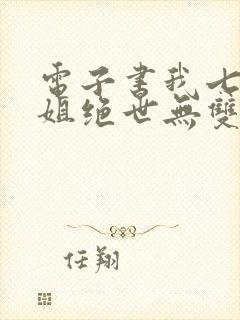 電子書我七
姐绝世無雙
任翔